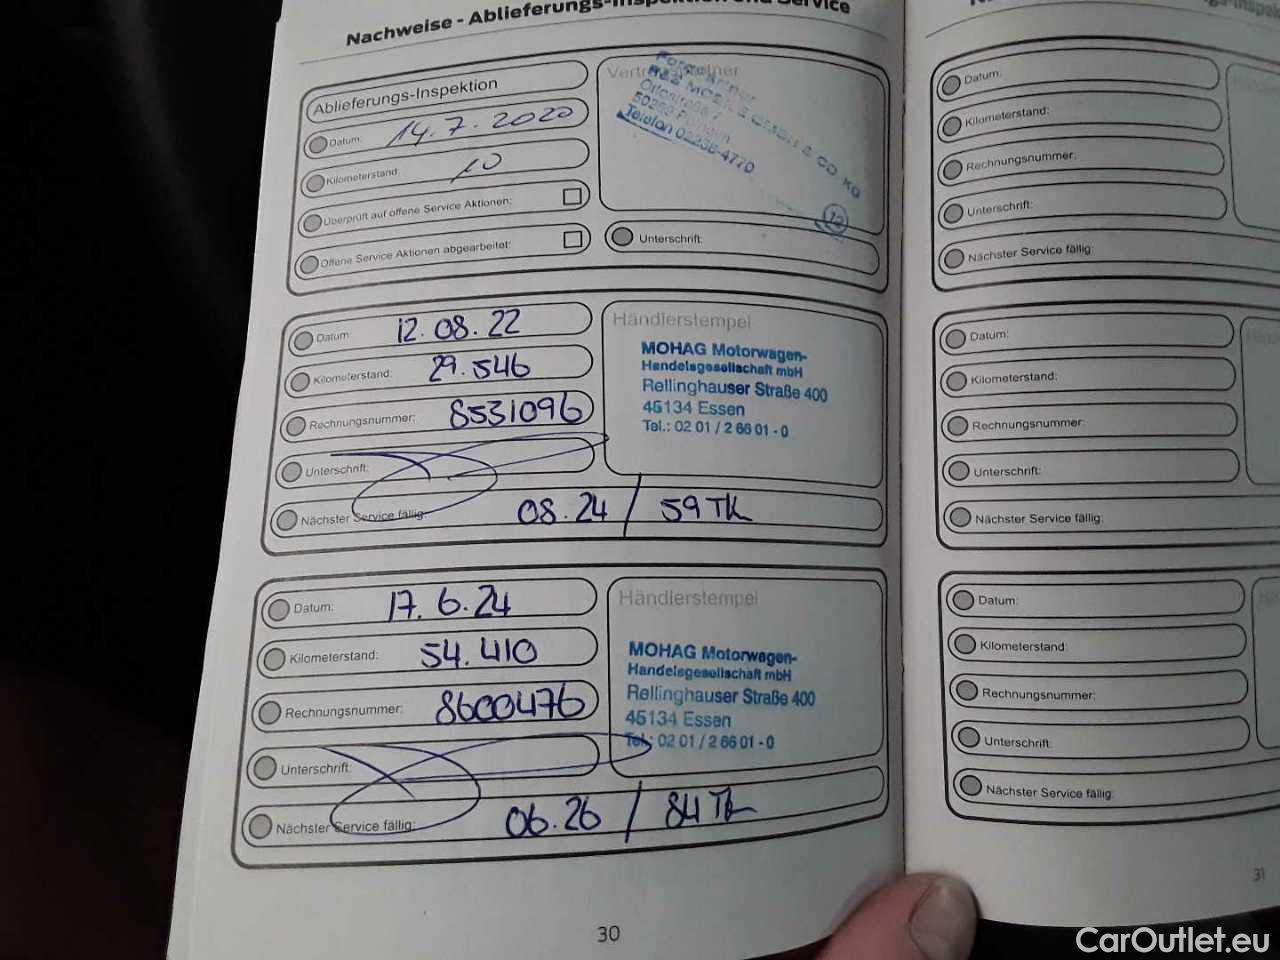 Nachweise - Ablieferungs-Inspektion und Service
Ablieferungs-Inspektion
Datum: 14.7.2020
Kilometerstand: 10
Überprüft auf offene Service Aktionen:
Offene Service Aktionen abgearbeitet:
GMBH & CO. KG
Telefon 02238-4770
12
Unterschrift:
Datum: 12.08.22
Kilometerstand: 29.546
Rechnungsnummer: 8531096
Unterschrift:
Nächster Service fällig: 08.24 / 59 TK
Händlerstempel
MOHAG Motorwagen-
Handelsgesellschaft mbH
Rellinghauser Straße 400
45134 Essen
Tel.: 02 01 / 2 66 01 - 0
Datum: 17.6.24
Kilometerstand: 54.410
Rechnungsnummer: 8600476
Unterschrift:
Nächster Service fällig: 06.26 / 84 TK
Händlerstempel
MOHAG Motorwagen-
Handelsgesellschaft mbH
Rellinghauser Straße 400
45134 Essen
Tel.: 02 01 / 2 66 01 - 0
30
Datum:
Kilometerstand:
Rechnungsnummer:
Unterschrift:
Nächster Service fällig:
Datum:
Kilometerstand:
Rechnungsnummer:
Unterschrift:
Nächster Service fällig:
Datum:
Kilometerstand:
Rechnungsnummer:
Unterschrift:
Nächster Service fällig:
31
CarOutlet.eu